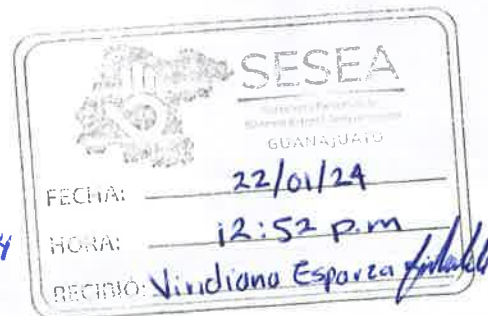 SESEA
GUANAJUATO
FECHA: 22/01/24
HORA: 12:52 p.m
RECIBIÓ: Viridiana Esparza